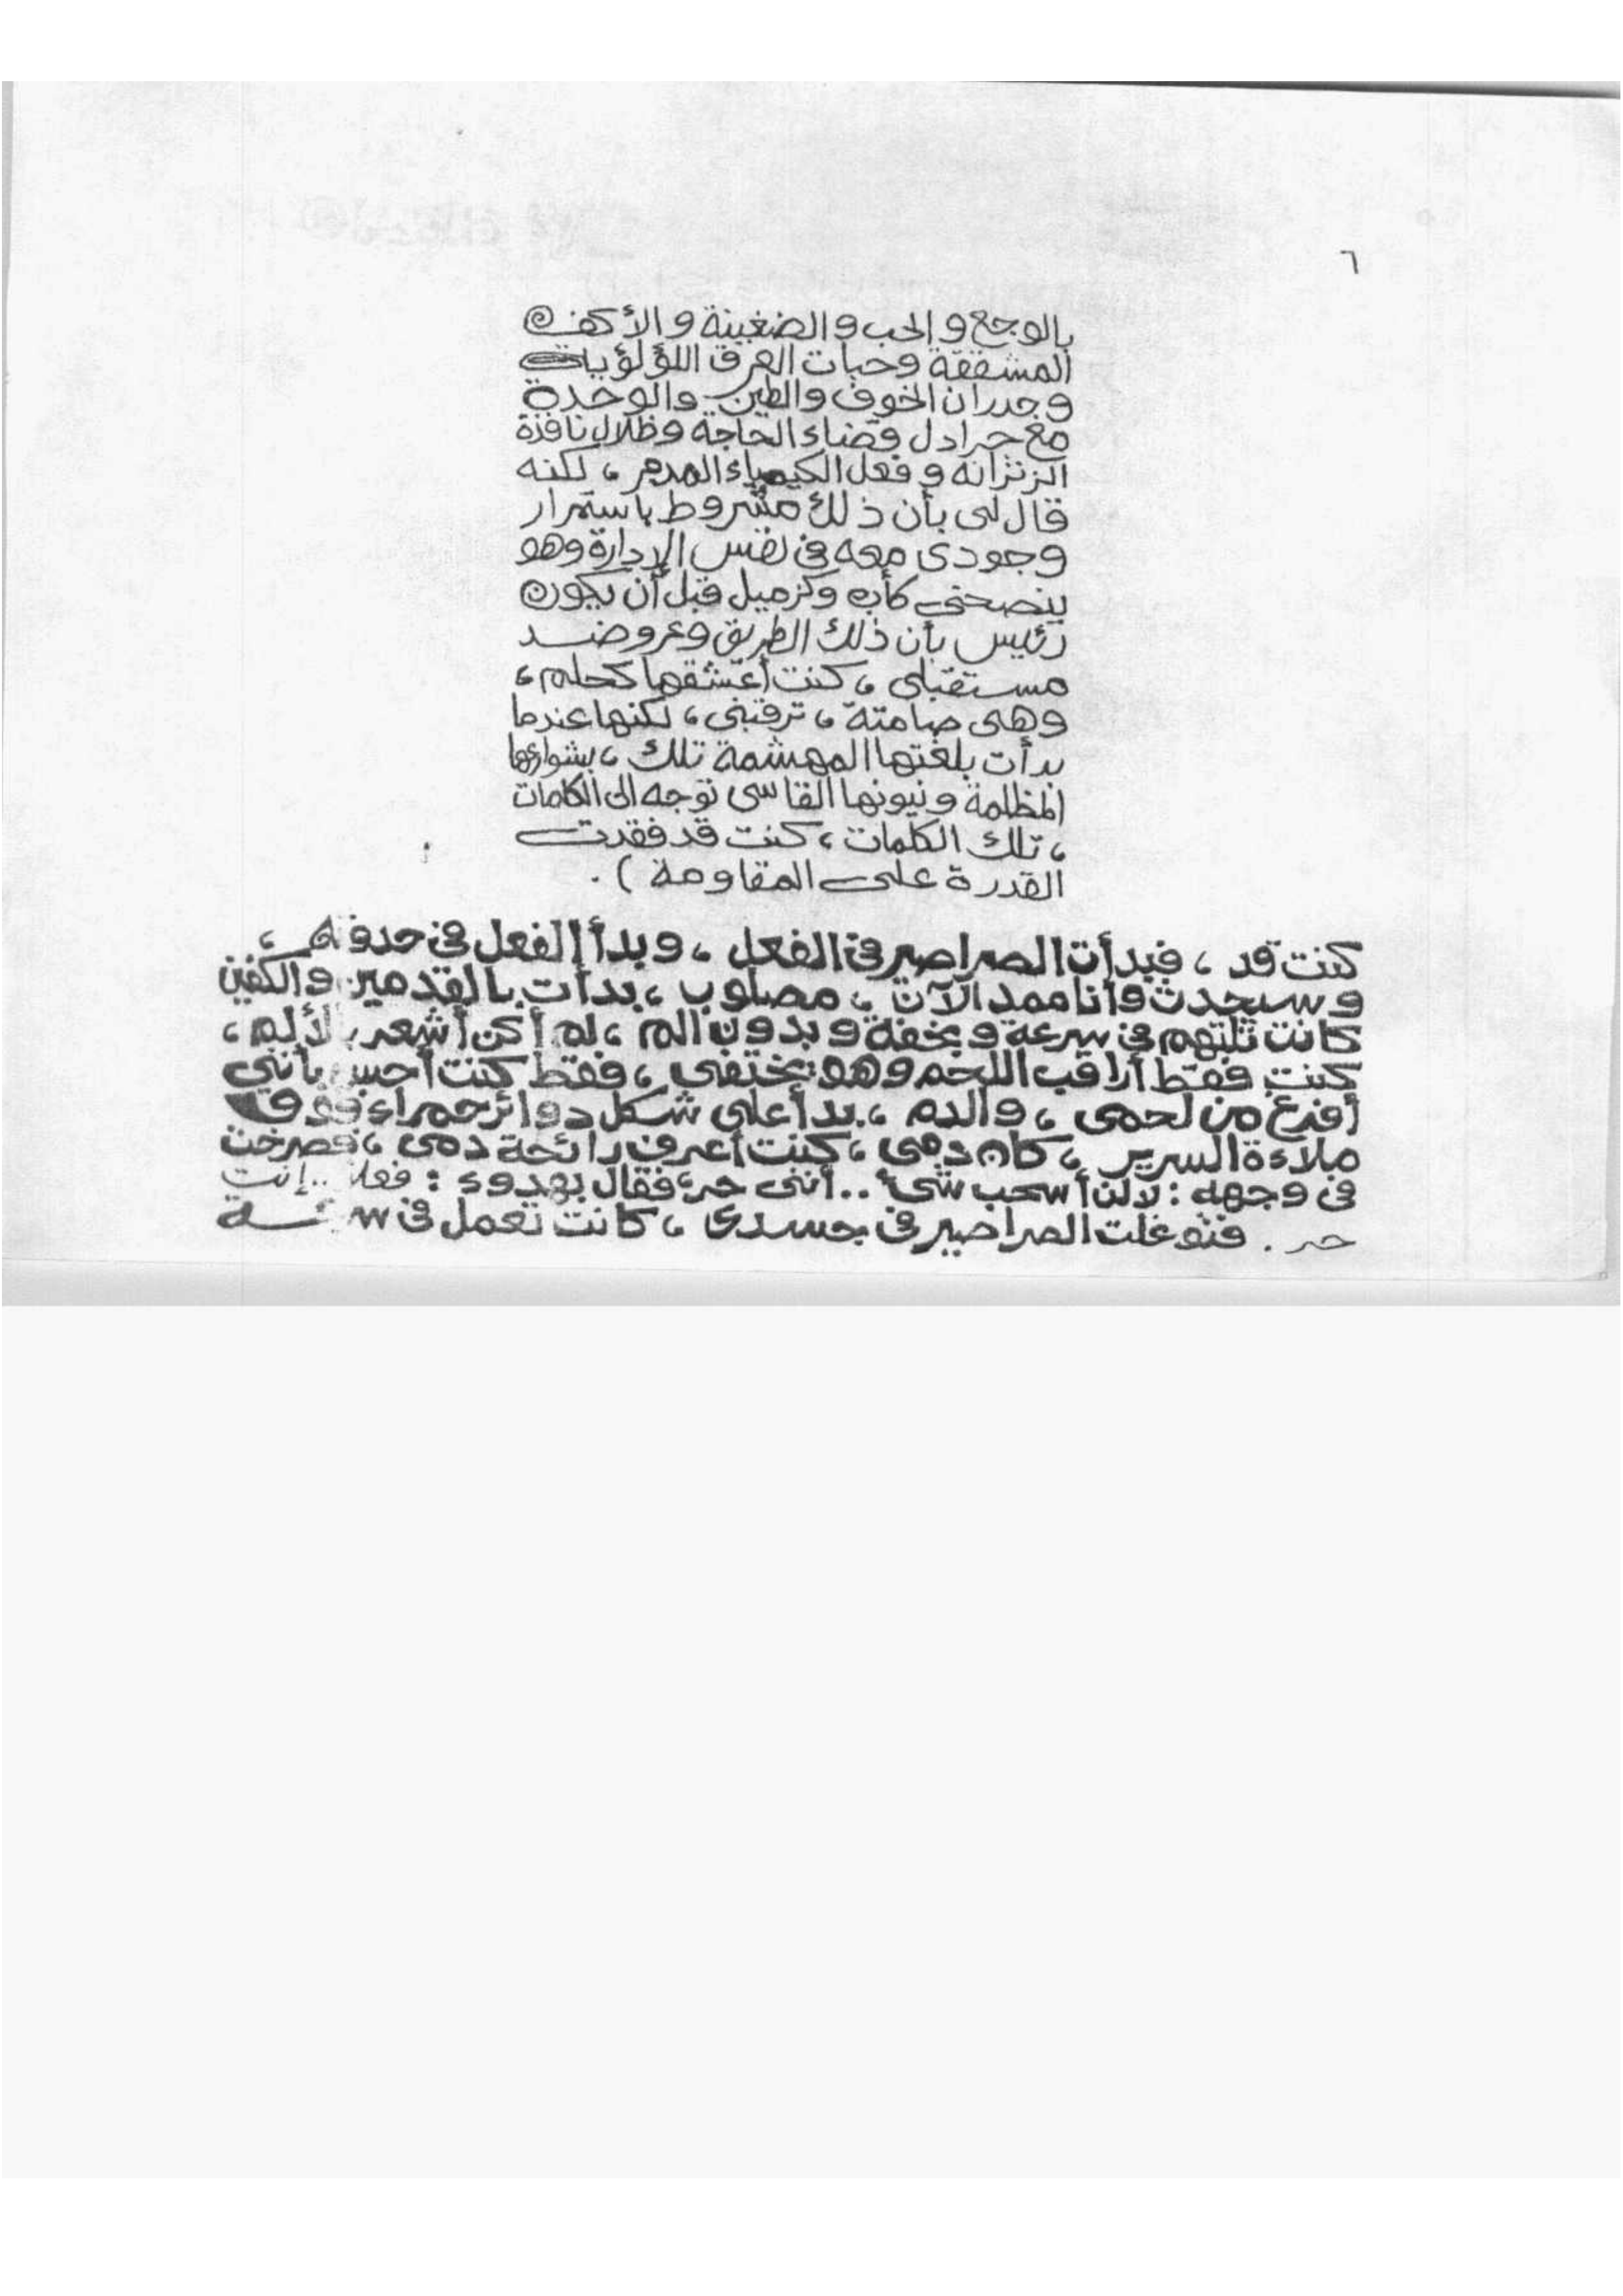 ٦
بالوجع و الحب و الضغينة و الأكف
المشققة وحبات العرق اللؤلؤيات
وجدران الخوف والطين والوحدة
مع جرادل قضاء الحاجة وظلال نافذة
الزنزانة و فعل الكيمياء المدمر ، لكنه
قال لى بأن ذلك مشروط باستمرار
وجودى معه فى نفس الإدارة وهو
ينصحنى كأب وكزميل قبل أن يكون
رئيس بأن ذلك الطريق وعر وضد
مستقبلى ، كنت أعشقها كحلم ،
وهى صامتة ، ترقبنى ، لكنها عندما
بدأت بلغتها المهشمة تلك ، بشوارعها
المظلمة ونيونها القاسى توجه الى الكلمات
، تلك الكلمات ، كنت قد فقدت
القدرة على المقاومة ) .
كنت قد ، فبدأت الصراصير فى الفعل ، وبدأ الفعل فى حدوثه ،
وسيحدث وأنا ممد الآن ، مصلوب ، بدأت بالقدمين والكفين
كانت تلتهم فى سرعة وبخفة وبدون الم ، لم أكن أشعر بالألم ،
كنت فقط أراقب اللحم وهو يختفى ، فقط كنت أحس بأننى
أفرغ من لحمى ، والدم ، بدأ على شكل دوائر حمراء فوق
ملاءة السرير ، كان دمى ، كنت أعرف رائحة دمى ، فصرخت
فى وجهه : لا لن أسحب شئ .. أننى حر ، فقال بهدوء : فعلا .. إنت
حر . فتوغلت الصراصير فى جسدى ، كانت تعمل فى